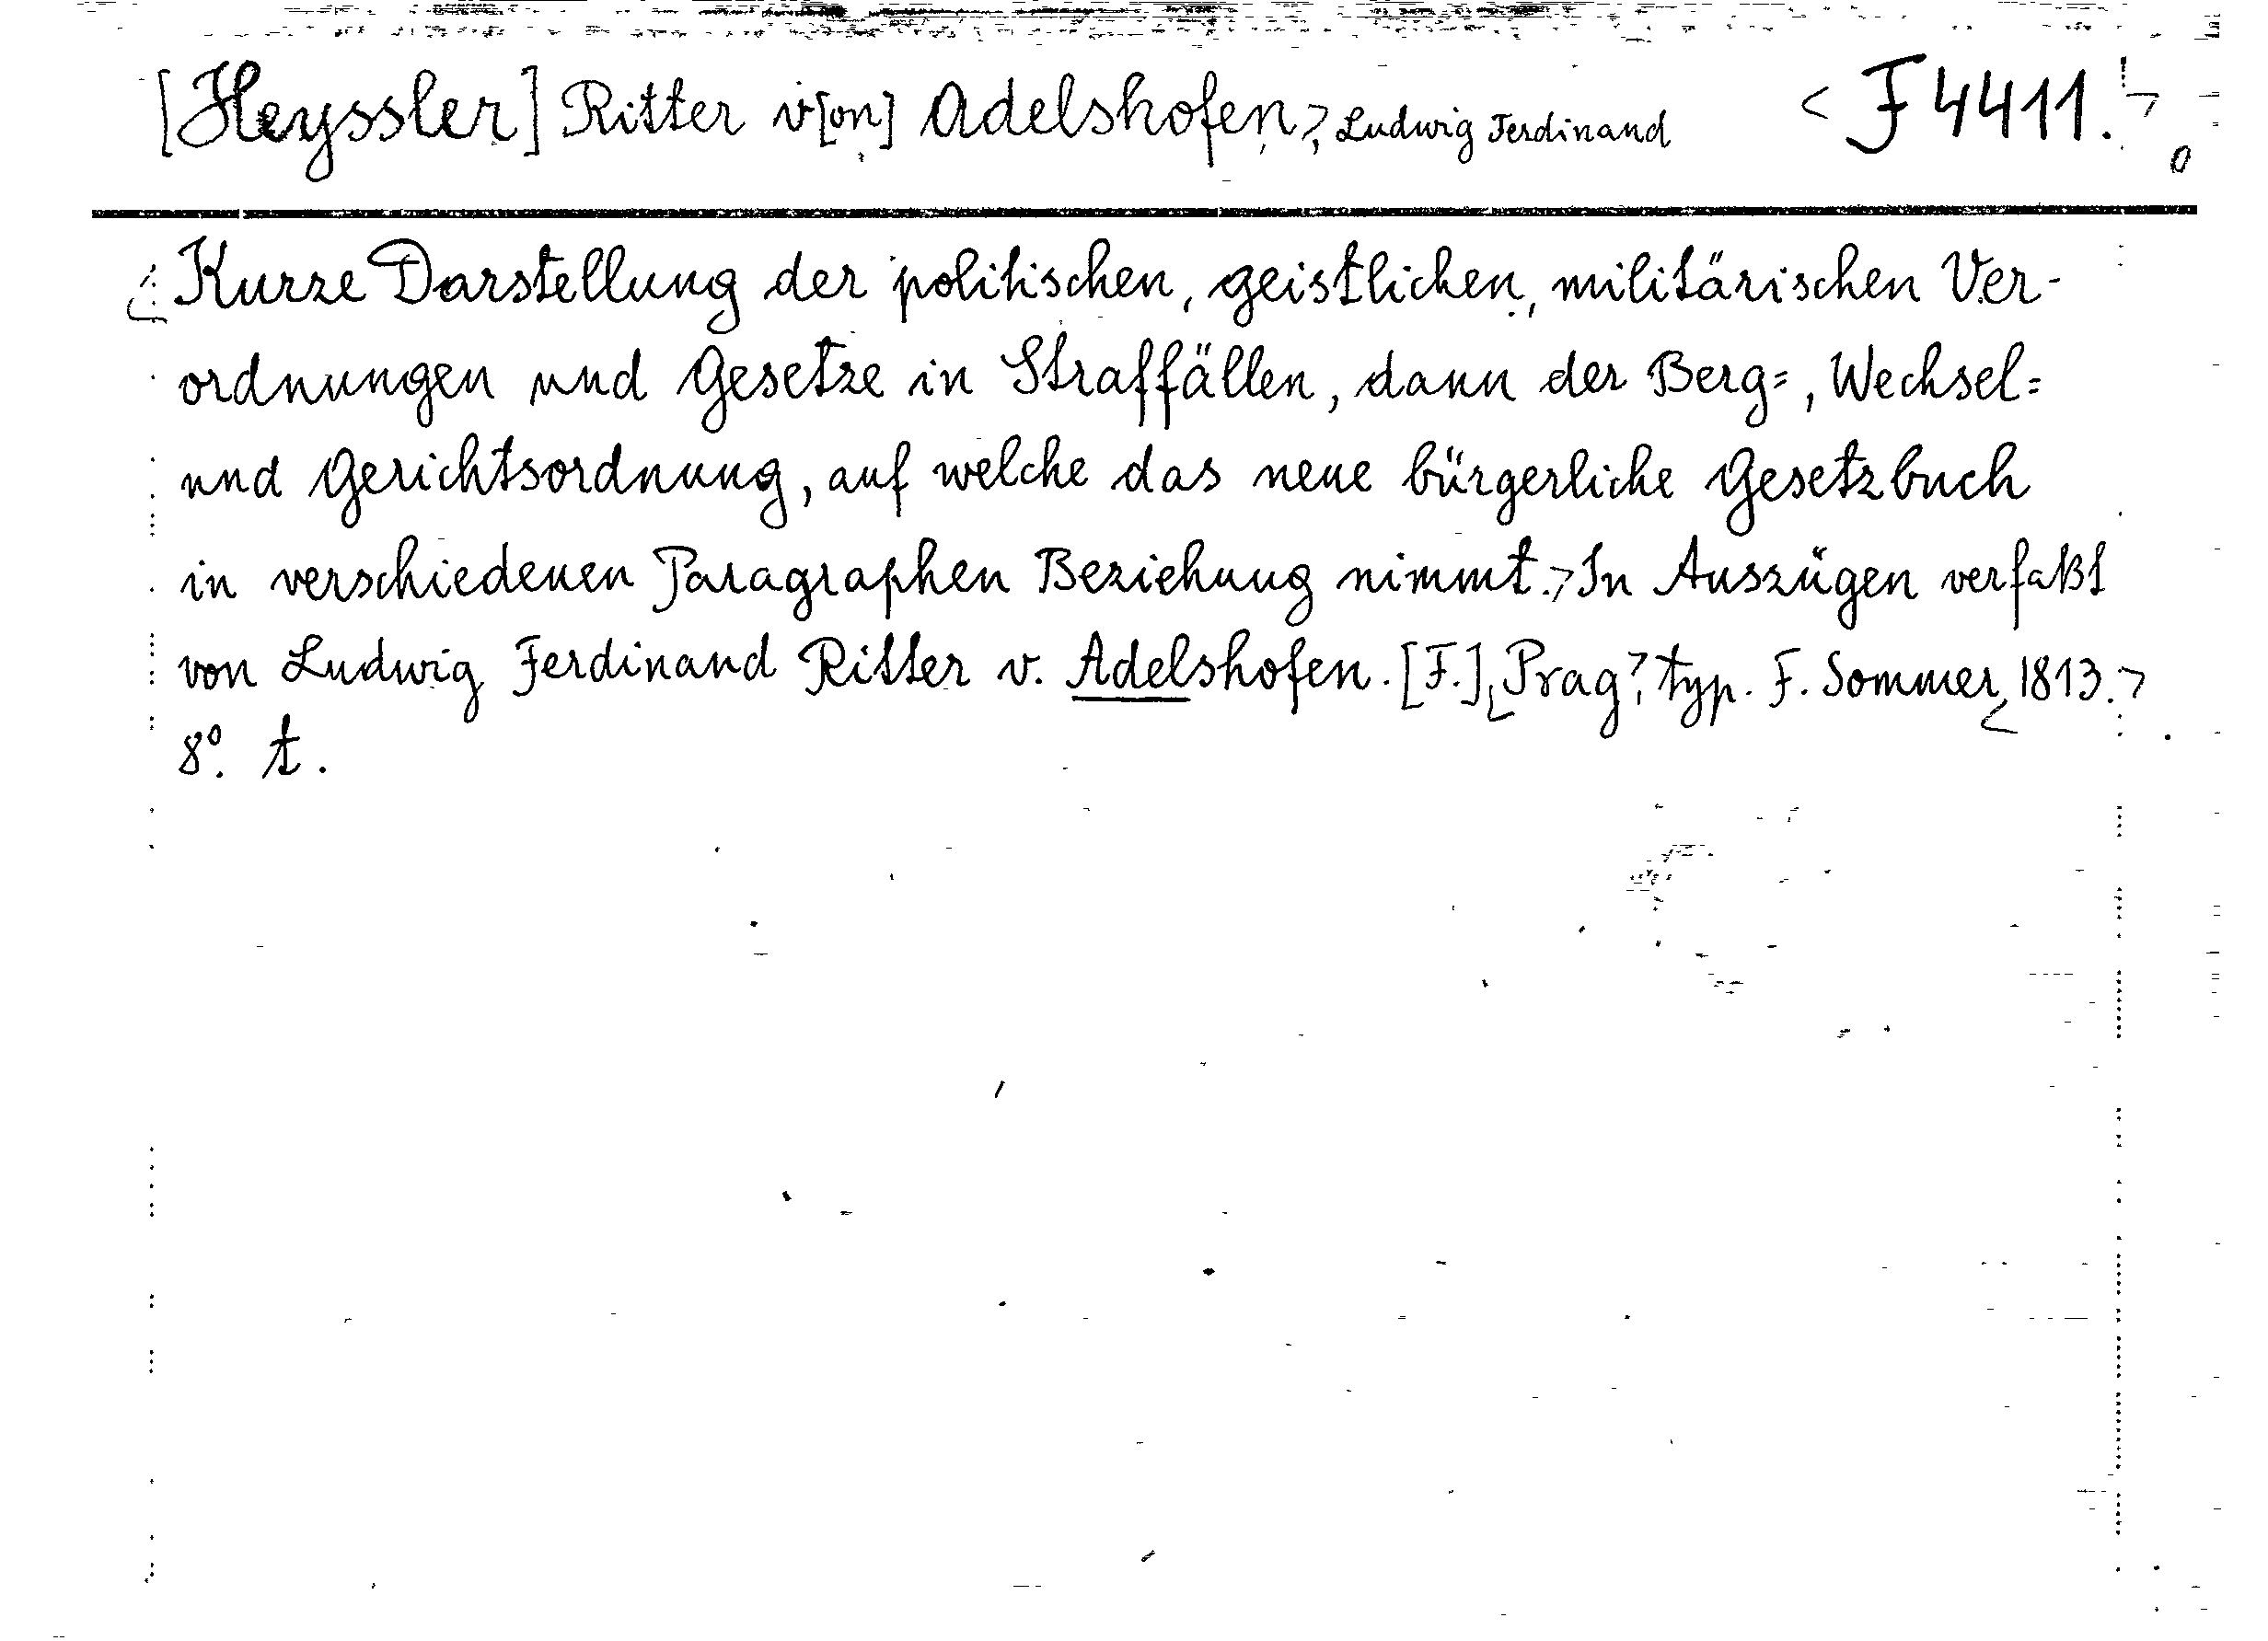 [Heyssler] Ritter v[on] Adelshofen, Ludwig Ferdinand <F 4411.>
Kurze Darstellung der politischen, geistlichen, militärischen Ver-
ordnungen und Gesetze in Straffällen, dann der Berg=, Wechsel=
und Gerichtsordnung, auf welche das neue bürgerliche Gesetzbuch
in verschiedenen Paragraphen Beziehung nimmt.> In Auszügen verfaßt
von Ludwig Ferdinand Ritter v. Adelshofen. [F.], Prag, typ. F. Sommer, 1813.>
8º. t.